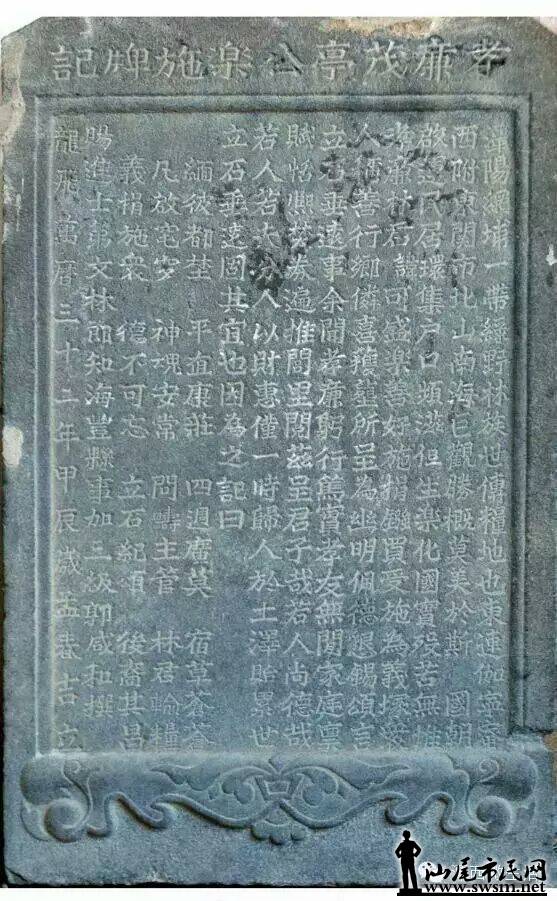 孝廉茂亭公樂施碑記
陽螺埔一帶綠野林族世傳糧地也東連伽
西附東關市北山南海巨觀勝概莫美於斯 國朝
啟 民居環集戶口頻滋但生樂化國實歿苦無
林君諱可盛樂善好施捐 買受施為義塚
人 善行鄉鄰喜獲 所呈為幽明佩德懇錫頌言
立 垂遠事余聞孝廉躬行篤實孝友無閒家庭稟
賦恬熙 券遍推閭里閱茲呈君子哉若人尚德哉
若人若夫分人以財惠僅一時歸人於土澤貽累世
立石垂遠固其宜也因為之記曰
緬彼都埜 平宜康莊 四週廣莫 宿草蒼蒼
凡啟宅穸 神魂安常 問疇主管 林君輸糧
義捐施衆 德不可忘 立石紀頌 後裔其昌
賜進士第文林郎知海豐縣事加三級郭咸和撰
龍飛萬曆三十二年甲辰歲孟春吉立
汕尾市民网
www.swsm.net